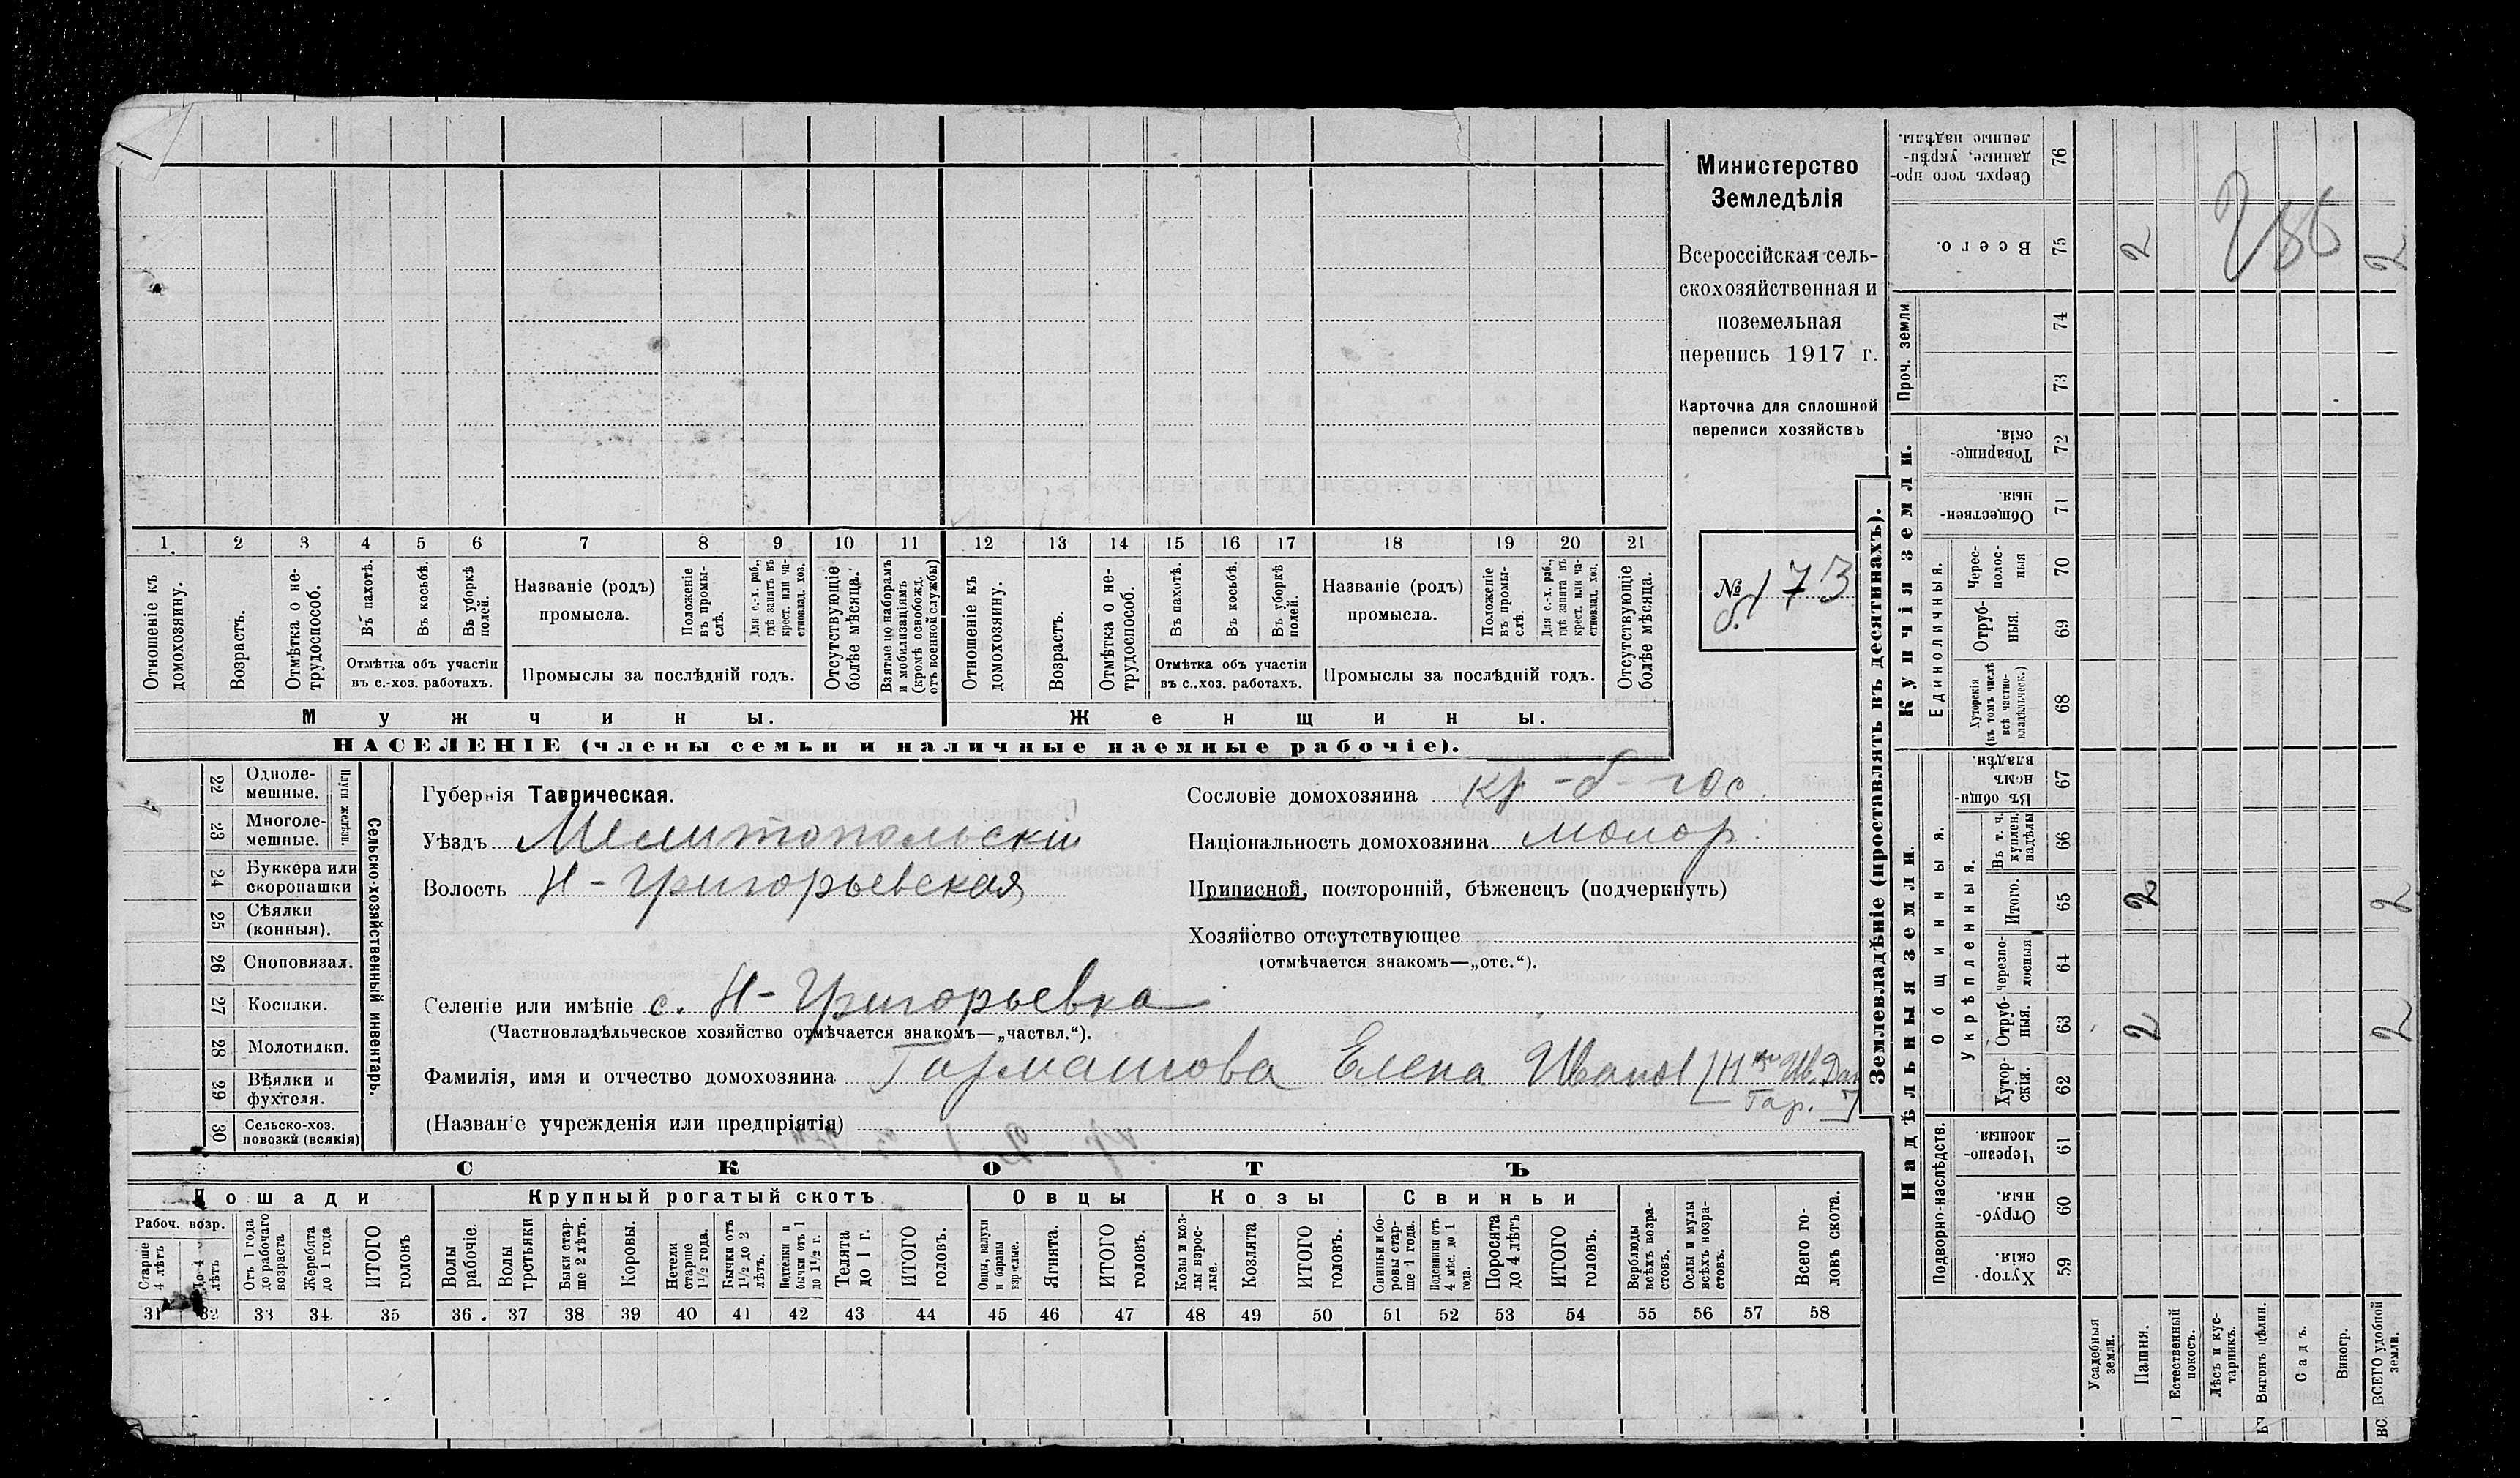 Министерство
Земледѣлія
Всероссійская сель-
скохозяйственная и
поземельная
перепись 1917 г.
Карточка для сплошной
переписи хозяйствъ
№ 173
1 2 3 4 5 6 7 8 9 10 11 12 13 14 15 16 17 18 19 20 21
Отношеніе къ домохозяину.
Возрастъ.
Отмѣтка о не-трудоспособ.
Въ пахотѣ.
Въ косьбѣ.
Въ уборкѣ полей.
Отмѣтка объ участіи
въ с.-хоз. работахъ.
Названіе (родъ)
промысла.
Положеніе въ промы-слѣ.
Для с.-х. раб., гдѣ занятъ въ крест. или ча-стновлад. хоз.
Промыслы за послѣдній годъ.
Отсутствующіе болѣе мѣсяца.
Взятые по наборамъ и мобилизаціямъ (кромѣ освобожд. отъ военной службы)
Отношеніе къ домохозяину.
Возрастъ.
Отмѣтка о не-трудоспособ.
Въ пахотѣ.
Въ косьбѣ.
Въ уборкѣ полей.
Отмѣтка объ участіи
въ с..хоз. работахъ.
Названіе (родъ)
промысла.
Положеніе въ промы-слѣ.
Для с.-х. раб., гдѣ занятъ въ крест. или ча-стновлад. хоз.
Промыслы за послѣдній годъ.
Отсутствующіе болѣе мѣсяца.
Мужчины.
Женщины.
НАСЕЛЕНІЕ (члены семьи и наличные наемные рабочіе).
Сельско-хозяйственный инвентарь.
Плуги желѣзн.
22 Одноле-мешные.
23 Многоле-мешные.
24 Буккера или скоропашки
25 Сѣялки (конныя).
26 Сноповязал.
27 Косилки.
28 Молотилки.
29 Вѣялки и фухтеля.
30 Сельско-хоз. повозки (всякія)
Губернія Таврическая.
Уѣздъ Мелитопольскій
Волость Н-Григорьевская
Селеніе или имѣніе с. Н-Григорьевка
(Частновладѣльческое хозяйство отмѣчается знакомъ—„частвл.“).
Фамилія, имя и отчество домохозяина Гармашова Елена Иванов
Гар.
(Названіе учрежденія или предпріятія)
Сословіе домохозяина кр-б-гос.
Національность домохозяина малор.
Приписной, посторонній, бѣженецъ (подчеркнуть)
Хозяйство отсутствующее
(отмѣчается знакомъ—„отс.“).
СКОТЪ
Лошади
Крупный рогатый скотъ
Овцы
Козы
Свиньи
Рабоч. возр.
Старше 4 лѣтъ
До 4 лѣтъ
Отъ 1 года до рабочаго возраста
Жеребята до 1 года
ИТОГО головъ
Волы рабочіе.
Волы третьяки
Быки стар-ше 2 лѣтъ.
Коровы.
Нетели старше 1½ года.
Бычки отъ 1½ до 2 лѣтъ.
Подтелки и бычки отъ 1 до 1½ г.
Телята до 1 г.
ИТОГО головъ.
Овцы, валухи и бараны взрослые.
Ягнята.
ИТОГО головъ.
Козы и коз-лы взрос-лые.
Козлята
ИТОГО головъ.
Свиньи и бо-ровы стар-ше 1 года.
Подсвинки отъ 4 мѣс. до 1 года.
Поросята до 4 лѣтъ
ИТОГО головъ.
Верблюды всѣхъ возра-стовъ.
Ослы и мулы всѣхъ возра-стовъ.
Всего го-ловъ скота.
31 32 33 34 35 36 37 38 39 40 41 42 43 44 45 46 47 48 49 50 51 52 53 54 55 56 57 58
Землевладѣніе (проставлять въ десятинахъ).
Надѣльныя земли.
Купчія земли.
Проч. земли
Подворно-наслѣдств.
Общинныя.
Укрѣпленныя.
Единоличныя.
76 Сверхъ того про-даннные, укрѣп-ленные надѣлы.
75 Всего. 2 2
286
74
73
72 Товарище-скія.
71 Обществен-ныя.
70 Черес-полос-ныя
69 Отруб-ныя.
68 Хуторскія (въ томъ числѣ всѣ частно-владѣльческ.)
67 Въ общин-номъ владѣн.
66 Въ т. ч. куплен. надѣлы
65 Итого. 2 2
64 черезпо-лосныя
63 Отруб-ныя. 2 2
62 Хутор-скія.
61 Черезпо-лосныя
60 Отруб-ныя.
59 Хутор-скія.
Усадебныя земли.
Пашня.
Естественный покосъ.
Лѣсъ и кус-тарникъ.
Выгонъ цѣлин.
Садъ.
Виногр.
ВСЕГО удобной земли.